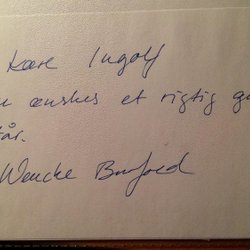 Kære Ingolf
ønskes et rigtig
år.
Wencke